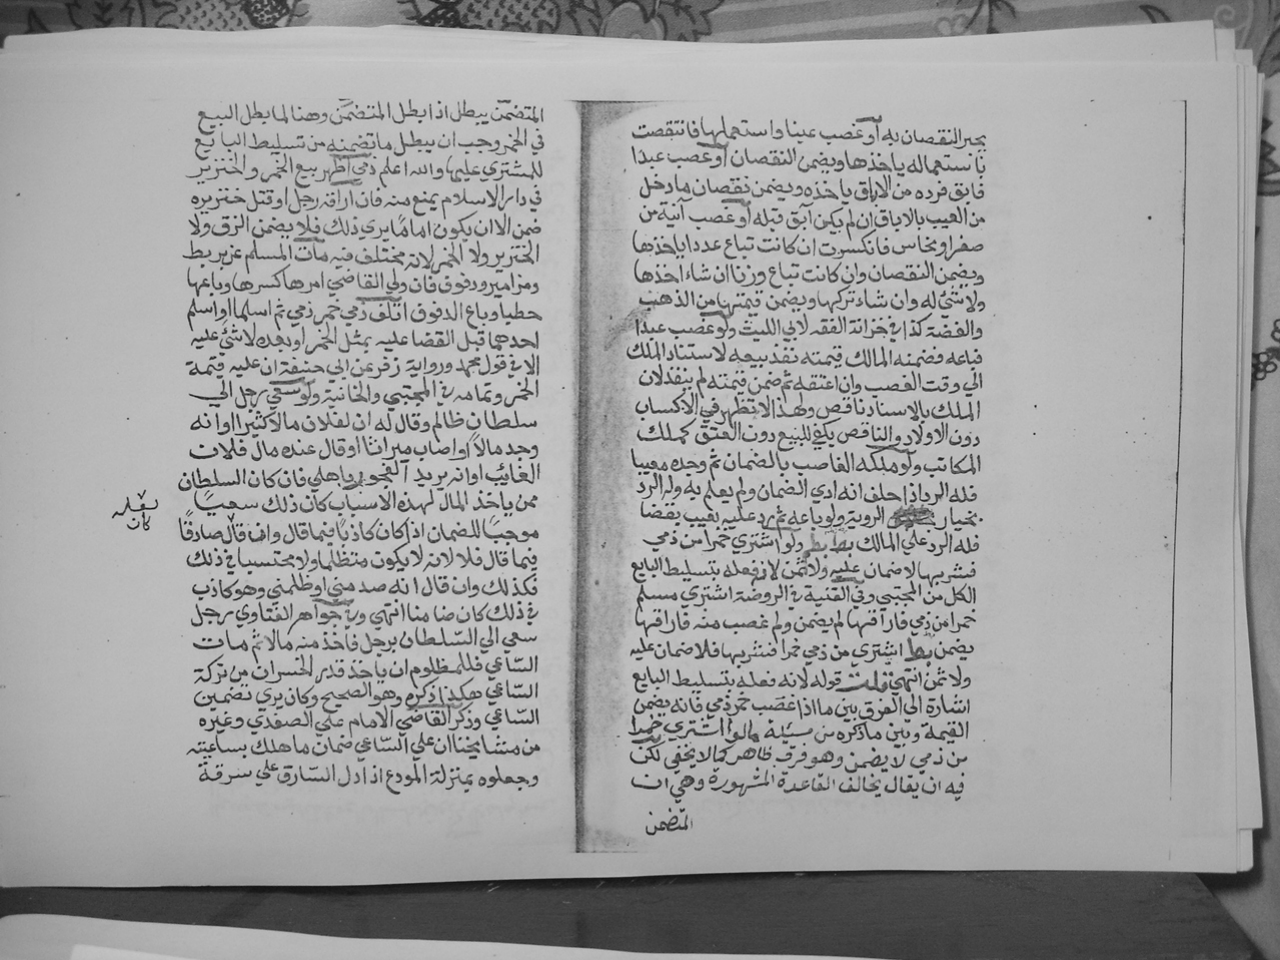 يجبر النقصان به أو غصب عينا واستعملها فانتقصت
باستعماله ياخذها ويضمن النقصان أو غصب عبدا
فابق فرده من الاباق ياخذه ويضمن نقصان ما دخل
من العيب بالاباق ان لم يكن آبق قبله أو غصب آنية من
صفر او نحاس فانكسرت ان كانت تباع عددا ياخذها
ويضمن النقصان وان كانت تباع وزنا ان شاء اخذها
ولا شئ له وان شاء تركها ويضمن قيمتها من الذهب
والفضة كذا في خزانة الفقه لابي الليث ولو غصب عبدا
فباعه فضمنه المالك قيمته نفذ بيعه لاستناد الملك
الي وقت الغصب وان اعتقه ثم ضمن قيمته لم ينفذ لان
الملك بالاسناد ناقص ولهذا لا تظهر في الاكساب
دون الاولاد والناقص يكفي للبيع دون العتق كملك
المكاتب ولو ملكه الغاصب بالضمان ثم وجده معيبا
فله الرد اذا حلف انه ادي الضمان ولم يعلم به وله الرد
بخيار الروية ولو باعه ثم رد عليه بعيب بقضا
فله الرد علي المالك ولو اشتري خمرا من ذمي
فشربها لا ضمان عليه ولا ثمن لان فعله بتسليط البايع
الكل من المجتبي وفي القنية في الروضة اشتري مسلم
خمرا من ذمي فاراقها لم يضمن ولم غصب منه فاراقها
يضمن اشتري من ذمي خمرا فشربها فلا ضمان عليه
ولا ثمن انتهي قلت قوله لانه فعله بتسليط البايع
اشارة الي الفرق بين ما اذا غصب خمر ذمي فانه يضمن
القيمة وبين ما ذكره من مسئلة مالو اشتري خمرا
من ذمي لا يضمن وهو فرق ظاهر كما لا يخفي لكن
فيه ان يقال يخالف القاعدة المشهورة وهي ان
المتضمن
المتضمن يبطل اذا بطل المتضمن وهنا لما بطل البيع
في الخمر وجب ان يبطل ما تضمنه من تسليط البايع
للمشتري عليها والله اعلم ذمي اظهر بيع الخمر والخنزير
في دار الاسلام يمنع منه فان اراقه رجل او قتل خنزيره
ضمن الا ان يكون اماما يري ذلك فلا يضمن الزق ولا
الخنزير ولا الخمر لانه مختلف فيه مات المسلم عن بربط
ومزامير ودفوف فان ولي القاضي امرها كسرها وباعها
حطبا وباع الدفوق اتلف ذمي خمر ذمي ثم اسلما او اسلم
احدهما قبل القضا عليه بمثل الخمر او بعده لا شئ عليه
الا في قول محمد ورواية زفر عن ابي حنيفة ان عليه قيمة
الخمر وتمامه في المجتبي والخانية ولو سعي رجل الي
سلطان ظالم وقال له ان لفلان مالا كثيرا او انه
وجد مالا او اصاب ميراثا او قال عنده مال فلان
الغائب او انه يريد الفجور باهلي فان كان السلطان
ممن ياخذ المال لهذه الاسباب كان ذلك سعيا
موجبا للضمان اذا كان كاذبا فيما قال وان قال صادقا
فيما قال فلا لانه لا يكون متظلما ولا محتسبا في ذلك
فكذلك وان قال انه صدمني او ظلمني وهو كاذب
في ذلك كان ضامنا انتهي وفي جواهر الفتاوي رجل
سعي الي السلطان برجل فاخذ منه مالا ثم مات
الساعي فللمظلوم ان ياخذ قدر الخسران من تركة
الساعي هكذا ذكره وهو الصحيح وكان يري تضمين
الساعي وذكر القاضي الامام علي الصغدي وغيره
من مشايخنا ان علي الساعي ضمان ما هلك بساعيته
وجعلوه بمنزلة المودع اذا دل السارق علي سرقة
لعله
كان